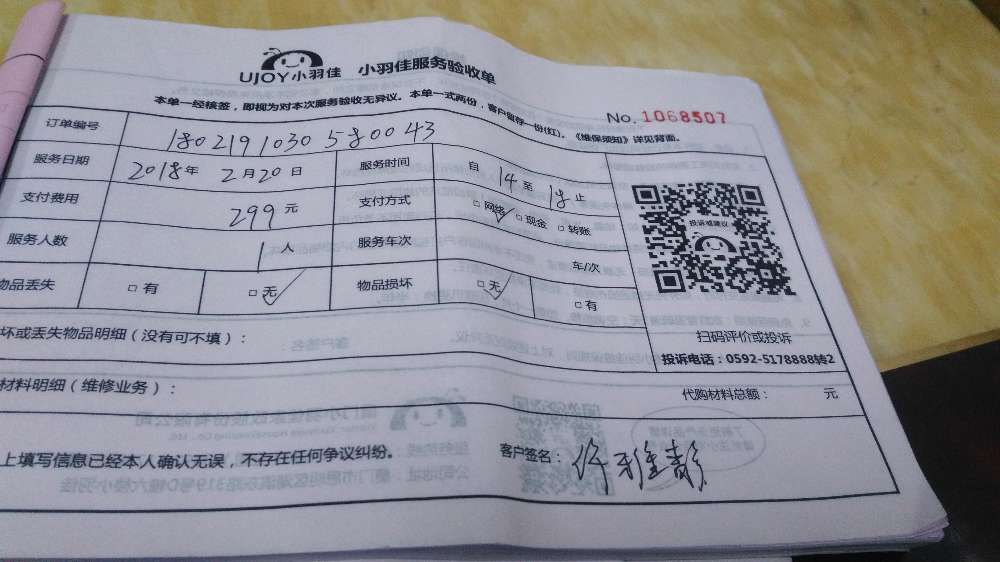 UJOY小羽佳 小羽佳服务验收单
本单一经核签，即视为对本次服务验收无异议。本单一式两份，客户留存一份(红)。《维保须知》详见背面。
No. 1068507
订单编号 180219103058 0043
服务日期 2018年 2月20日 服务时间 自 14 至 18 止
支付费用 299元 支付方式 □网络 □现金 □转账
投诉或建议
服务人数 1人 服务车次 车/次
物品丢失 □有 □无 物品损坏 □无 □有
扫码评价或投诉
坏或丢失物品明细（没有可不填）：
投诉电话：0592-5178888转2
材料明细（维修业务）： 代购材料总额： 元
上填写信息已经本人确认无误，不存在任何争议纠纷。 客户签名：